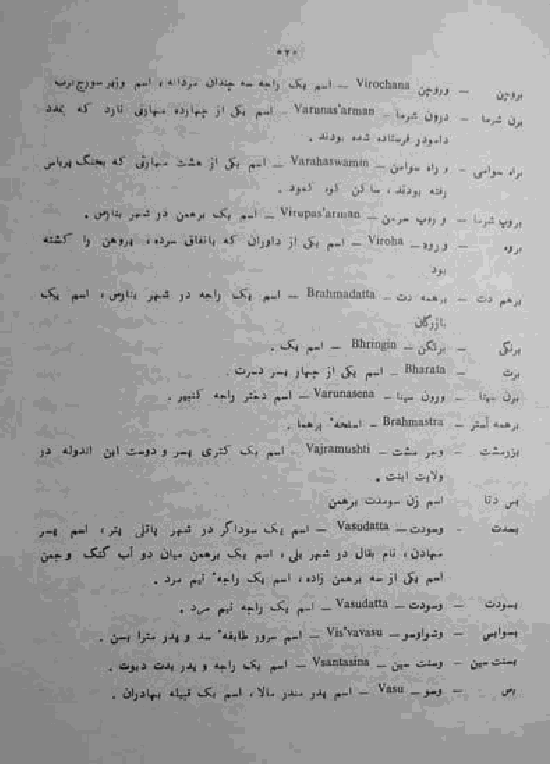 بروچن — وروچن Virochana — اسم یک راجه سه چندان مردانه، اسم وزیر
برن شرما — درون شرما — Varunas'arman — اسم یکی از چهارده مهارتی که بمدد
دامودر فرستاده شده بودند.
براه سوامی — وراه سوامن — Varahaswamin — اسم یکی از هشت مهارتی که بجنگ
رفته بودند، ساکن کوه کمود.
بروپ شرما — وروپ سرمن — Virupas'arman — اسم یک برهمن در شهر بنارس.
بروه — ورود — Viroha — اسم یکی از داوران که باتفاق بروهن را کشته
بود
برهم دت — برهمه دت — Brahmadatta — اسم یک راجه در شهر بنارس، اسم یک
بازرگان
برنکی — برنکن — Bhringin — اسم یک.
برت — Bharata — اسم یکی از چهار پسر
برن سینا — ورون سینا — Varunasena — اسم دختر راجه
برهمه استر — Brahmastra — اسلحهٔ برهما.
بزرمشت — وجر مشت — Vajramushti — اسم یک کتری پسر و دوست این
ولایت
بس دتا اسم زن سومدت برهمن
بسدت — وسودت — Vasudatta — اسم یک سوداگر در شهر پاتلی پتر، اسم پسر
مهادن، نام بقال در شهر، اسم یک برهمن میان دو آب گنگ و جمن
اسم یکی از سه برهمن زاده، اسم یک راجهٔ نیم مرد.
بسودت — وسودت — Vasudatta — اسم یک راجه نیم مرد.
بسوابسی — وشواوسو — Vis'vavasu — اسم سرور طایفهٔ سد و پدر مترا بسن.
بسنت سین — وسنت سین — Vsantasina — اسم یک راجه و پدر بدت
بس — وسو — Vasu — اسم پدر مندر مالا، اسم یک قبیله بهادران.